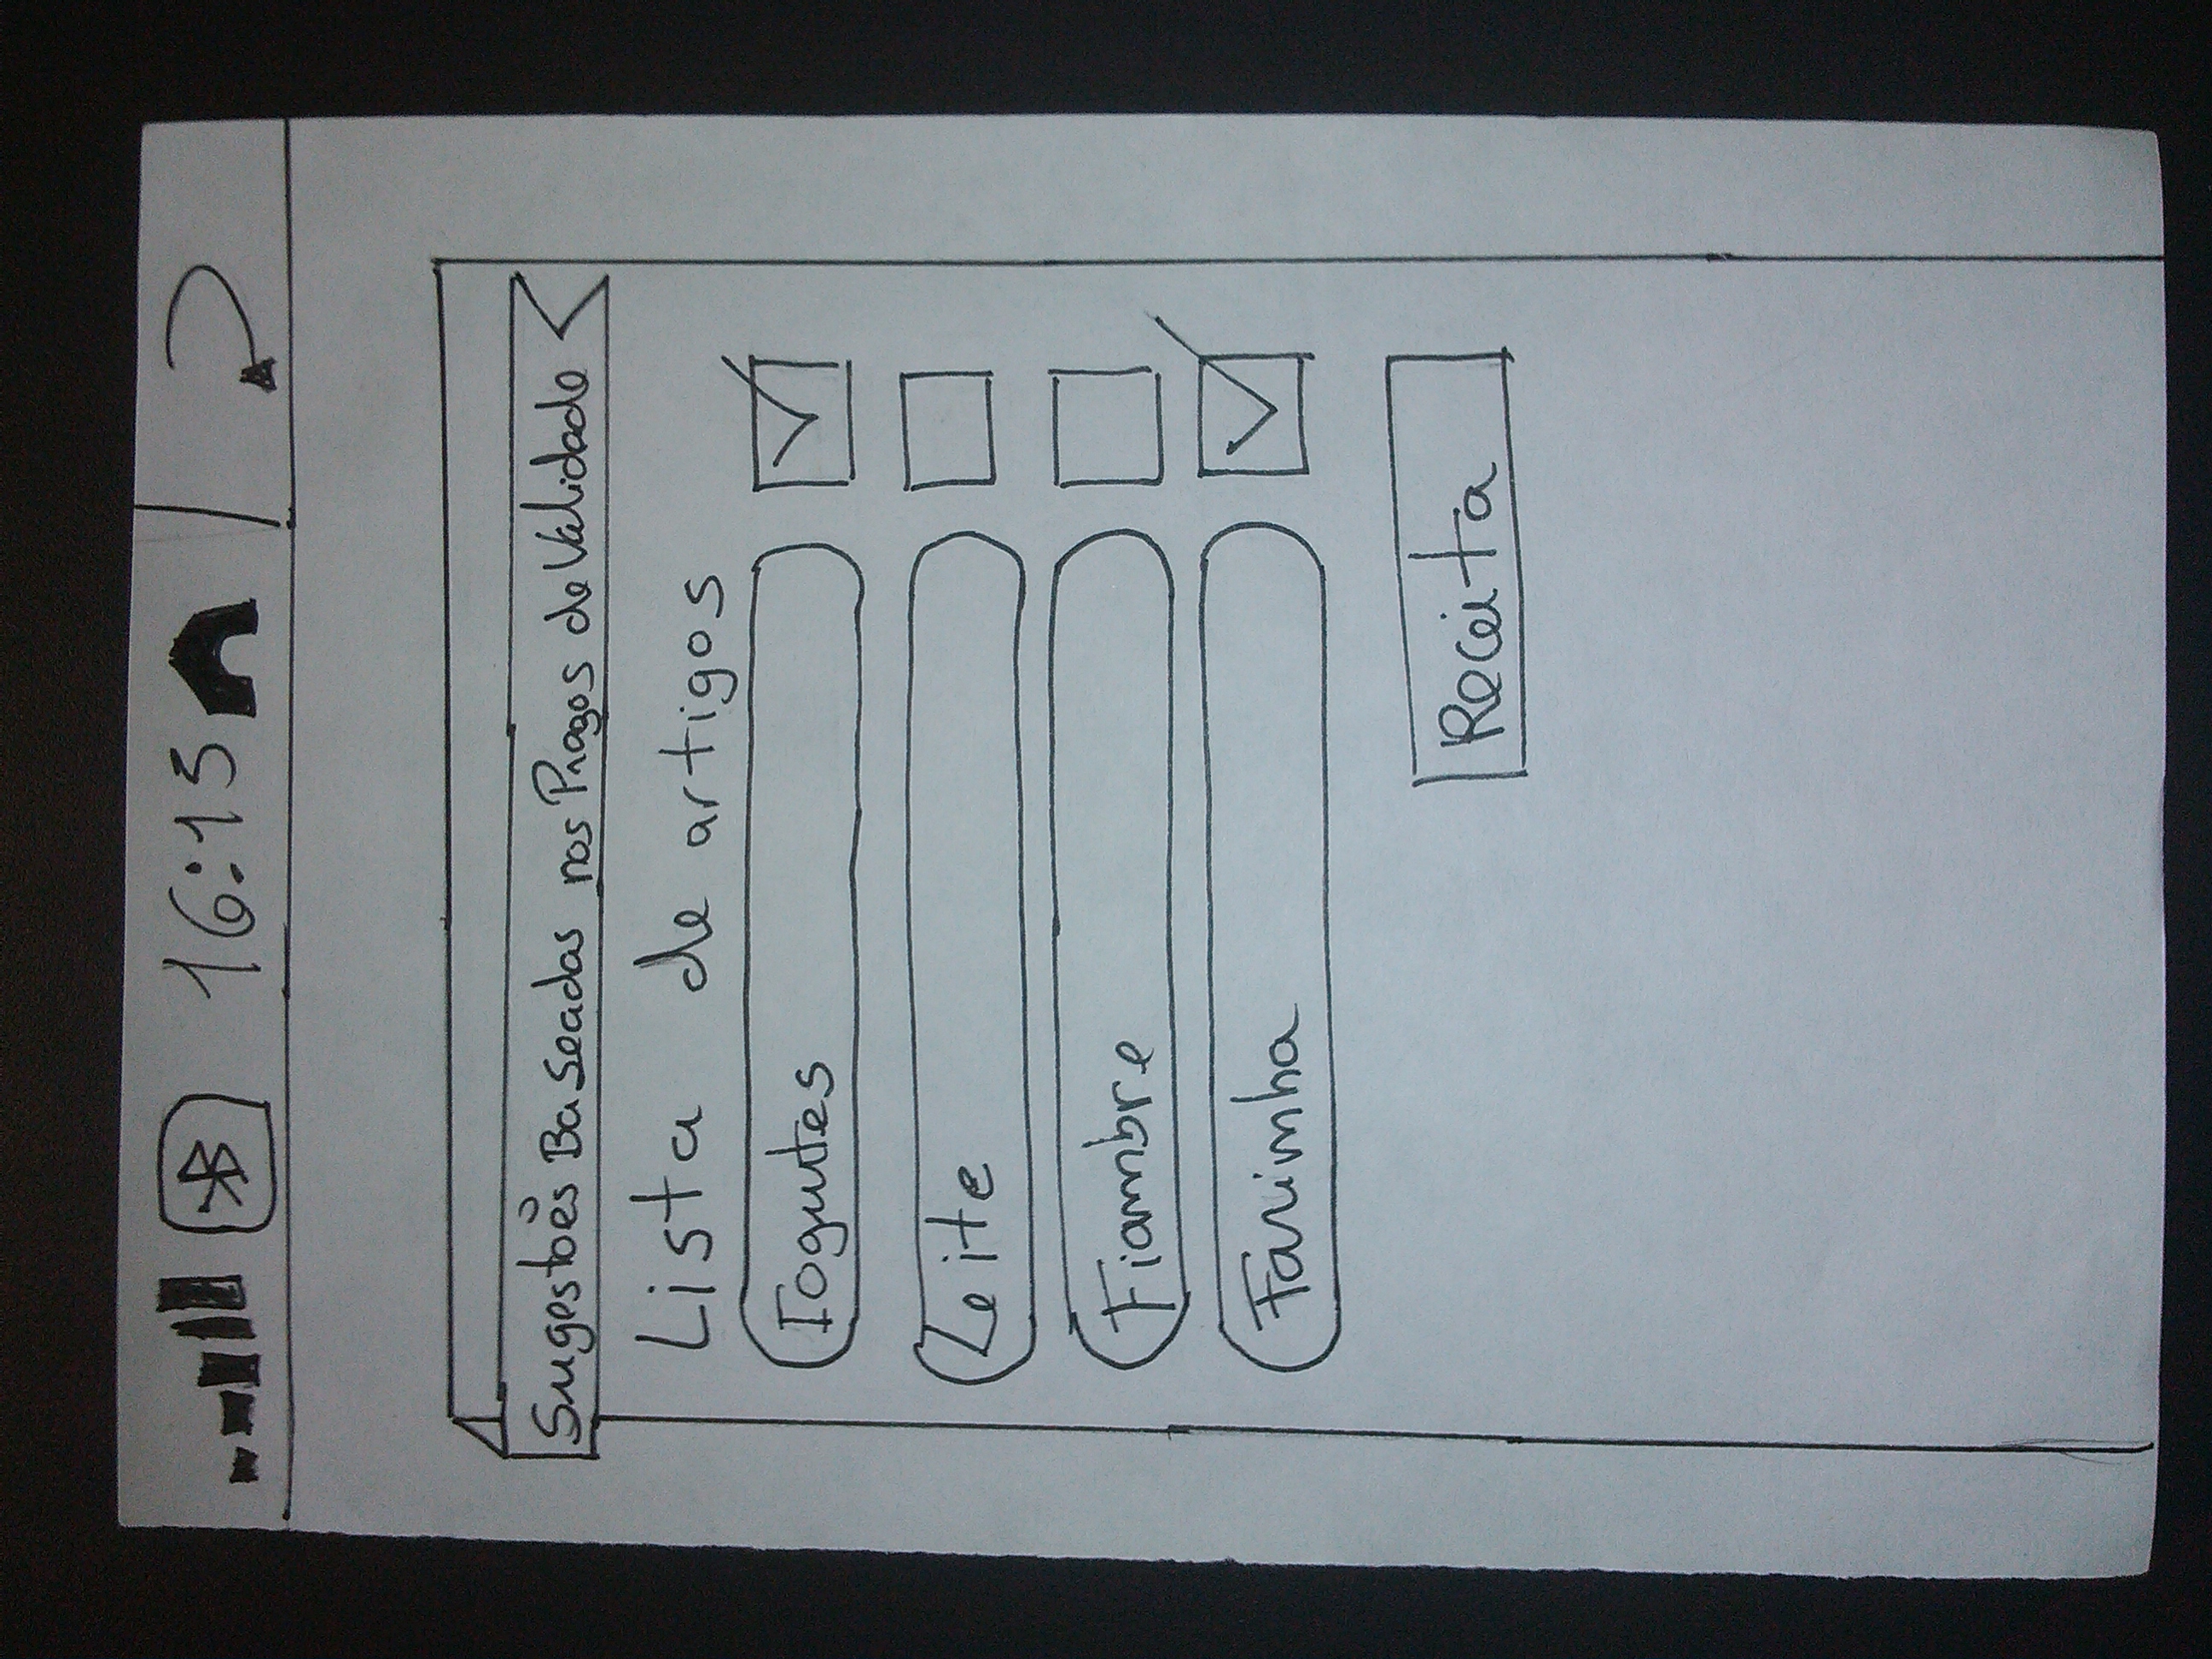 16:15
Sugestões Baseadas nos Prazos de Validade
Lista de artigos
Iogutes
Leite
Fiambre
Farinha
Receita